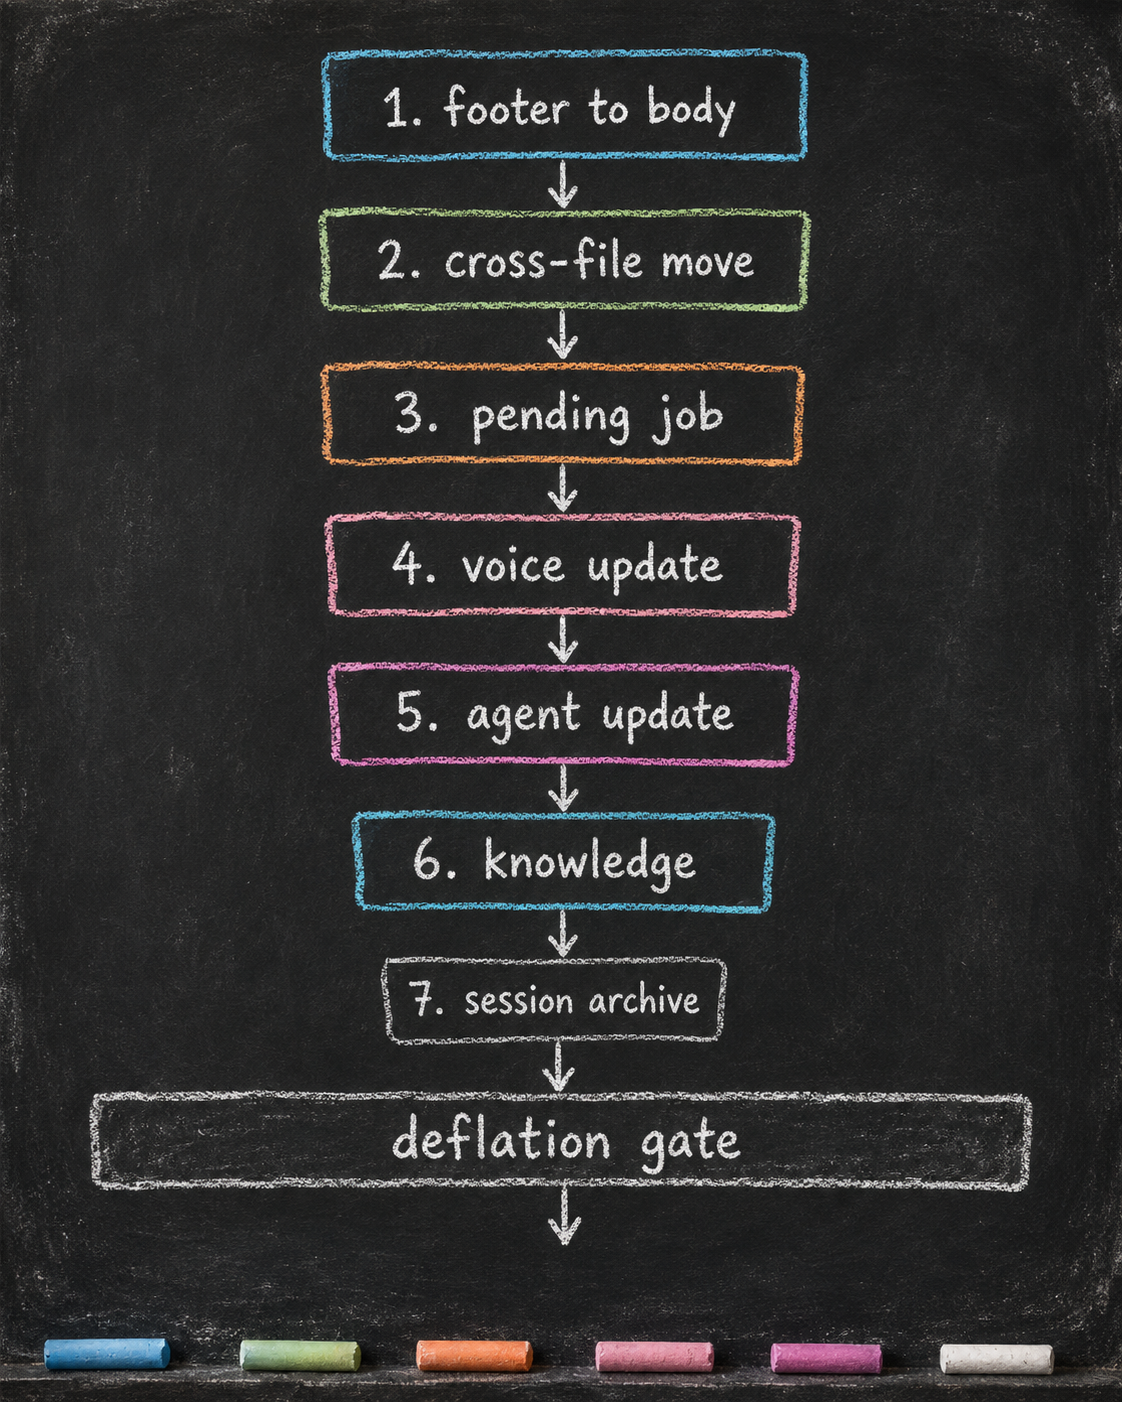 1. footer to body
2. cross-file move
3. pending job
4. voice update
5. agent update
6. knowledge
7. session archive
deflation gate